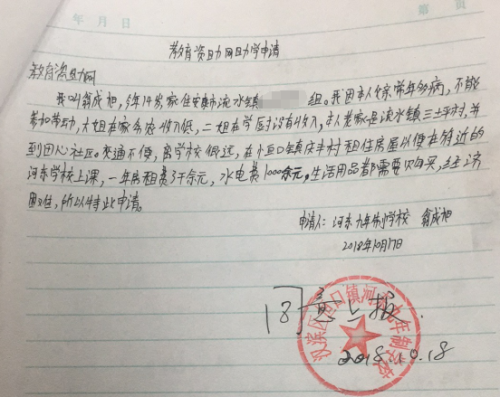 年 月 日
第 页
教育资助网助学申请
教育资助网
我叫翁成旭，今年14岁家住安康市流水镇 组。我因本人父亲常年多病，不能
参加劳动，大姐在家务农收入低，二姐在学医打没有收入，本人老家是流水镇三土平村，并
到团心社区。交通不便，离学校很远，在小区口镇庆丰村租住房屋以便在附近的
河东学校上课，一年房租费3千余元，水电费1000余元，生活用品都需要购买，经济
困难，所以特此申请。
申请人：河东九年制学校 翁成旭
2018年10月17日
同意上报
2018.10.18
汉滨区河口镇河东九年制学校